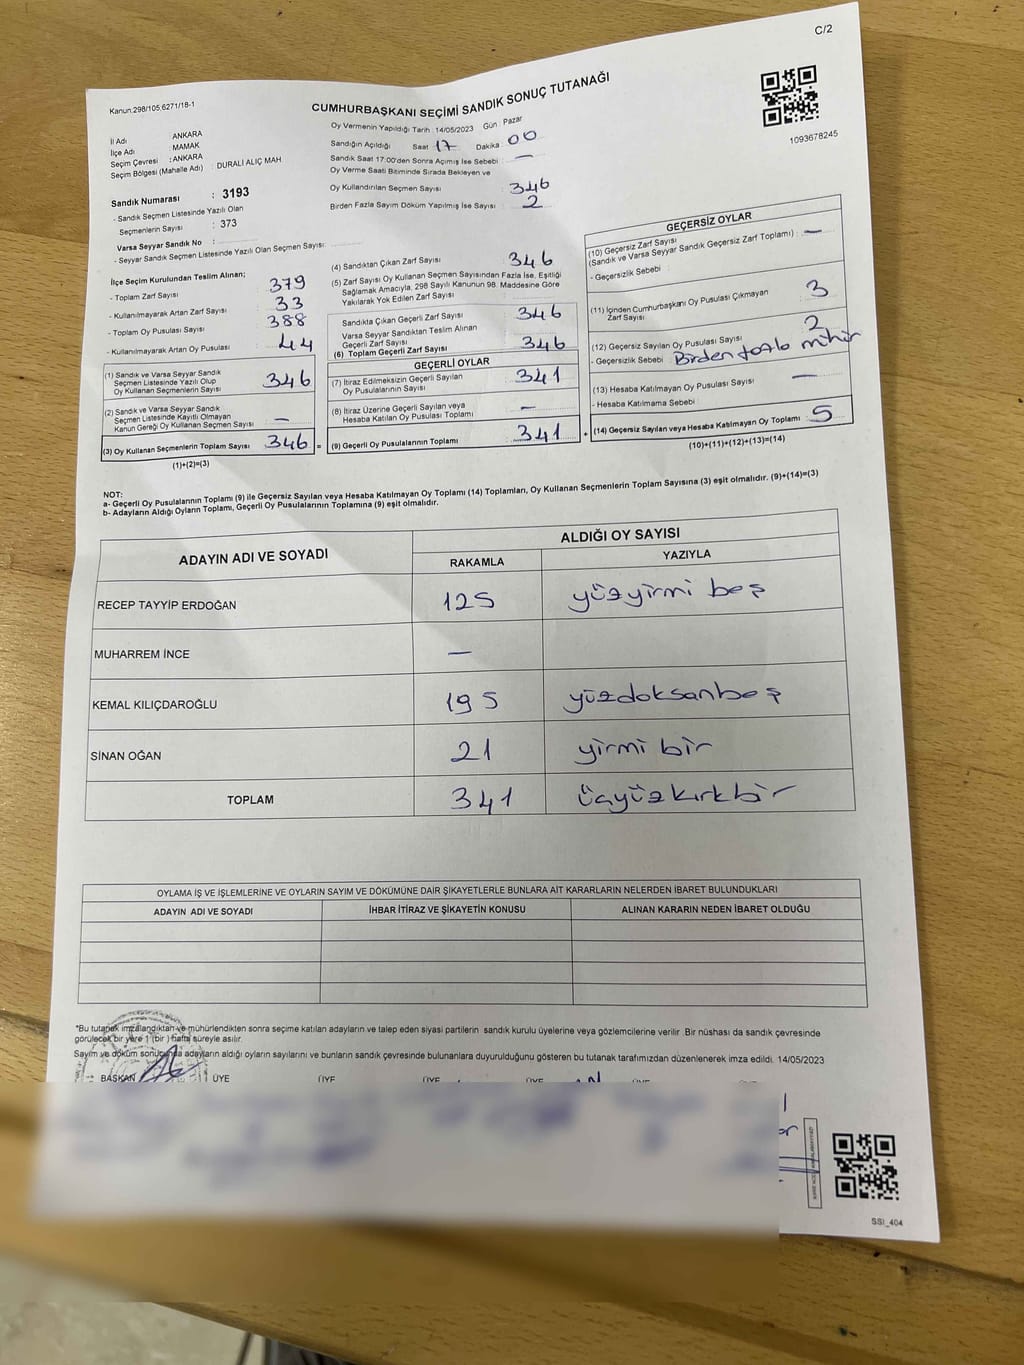 C/2
Kanun:298/105.6271/18-1
CUMHURBAŞKANI SEÇİMİ SANDIK SONUÇ TUTANAĞI
1093678245
İl Adı : ANKARA
İlçe Adı : MAMAK
Seçim Çevresi : ANKARA
Seçim Bölgesi (Mahalle Adı) : DURALİ ALIÇ MAH
Sandık Numarası : 3193
- Sandık Seçmen Listesinde Yazılı Olan
Seçmenlerin Sayısı : 373
Varsa Seyyar Sandık No :
- Seyyar Sandık Seçmen Listesinde Yazılı Olan Seçmen Sayısı:
Oy Vermenin Yapıldığı Tarih : 14/05/2023 Gün : Pazar
Sandığın Açıldığı Saat 17 Dakika 00
Sandık Saat 17:00'den Sonra Açımış İse Sebebi : —
Oy Verme Saati Bitiminde Sırada Bekleyen ve
Oy Kullandırılan Seçmen Sayısı 346
Birden Fazla Sayım Döküm Yapılmış İse Sayısı 2
İlçe Seçim Kurulundan Teslim Alınan;
- Toplam Zarf Sayısı 379
- Kullanılmayarak Artan Zarf Sayısı 33
- Toplam Oy Pusulası Sayısı 388
- Kullanılmayarak Artan Oy Pusulası 44
(1) Sandık ve Varsa Seyyar Sandık
Seçmen Listesinde Yazılı Olup
Oy Kullanan Seçmenlerin Sayısı 346
(2) Sandık ve Varsa Seyyar Sandık
Seçmen Listesinde Kayıtlı Olmayan
Kanun Gereği Oy Kullanan Seçmen Sayısı —
(3) Oy Kullanan Seçmenlerin Toplam Sayısı 346 =
(1)+(2)=(3)
(4) Sandıktan Çıkan Zarf Sayısı 346
(5) Zarf Sayısı Oy Kullanan Seçmen Sayısından Fazla İse, Eşitliği
Sağlamak Amacıyla, 298 Sayılı Kanunun 98. Maddesine Göre
Yakılarak Yok Edilen Zarf Sayısı
Sandıkla Çıkan Geçerli Zarf Sayısı 346
Varsa Seyyar Sandıktan Teslim Alınan
Geçerli Zarf Sayısı
(6) Toplam Geçerli Zarf Sayısı 346
GEÇERLİ OYLAR
(7) İtiraz Edilmeksizin Geçerli Sayılan
Oy Pusulalarının Sayısı 341
(8) İtiraz Üzerine Geçerli Sayılan veya
Hesaba Katılan Oy Pusulası Toplamı —
(9) Geçerli Oy Pusulalarının Toplamı 341 +
GEÇERSİZ OYLAR
(10) Geçersiz Zarf Sayısı
(Sandık ve Varsa Seyyar Sandık Geçersiz Zarf Toplamı) : —
- Geçersizlik Sebebi :
(11) İçinden Cumhurbaşkanı Oy Pusulası Çıkmayan
Zarf Sayısı 3
(12) Geçersiz Sayılan Oy Pusulası Sayısı 2
- Geçersizlik Sebebi Birden fazla mühür
(13) Hesaba Katılmayan Oy Pusulası Sayısı —
- Hesaba Katılmama Sebebi
(14) Geçersiz Sayılan veya Hesaba Katılmayan Oy Toplamı 5
(10)+(11)+(12)+(13)=(14)
NOT:
a- Geçerli Oy Pusulalarının Toplamı (9) ile Geçersiz Sayılan veya Hesaba Katılmayan Oy Toplamı (14) Toplamları, Oy Kullanan Seçmenlerin Toplam Sayısına (3) eşit olmalıdır. (9)+(14)=(3)
b- Adayların Aldığı Oyların Toplamı, Geçerli Oy Pusulalarının Toplamına (9) eşit olmalıdır.
ADAYIN ADI VE SOYADI ALDIĞI OY SAYISI
RAKAMLA YAZIYLA
RECEP TAYYİP ERDOĞAN 125 yüzyirmi beş
MUHARREM İNCE —
KEMAL KILIÇDAROĞLU 195 yüzdoksanbeş
SİNAN OĞAN 21 yirmi bir
TOPLAM 341 üçyüzkırkbir
OYLAMA İŞ VE İŞLEMLERİNE VE OYLARIN SAYIM VE DÖKÜMÜNE DAİR ŞİKAYETLERLE BUNLARA AİT KARARLARIN NELERDEN İBARET BULUNDUKLARI
ADAYIN ADI VE SOYADI İHBAR İTİRAZ VE ŞİKAYETİN KONUSU ALINAN KARARIN NEDEN İBARET OLDUĞU
*Bu tutanak imzalandıktan ve mühürlendikten sonra seçime katılan adayların ve talep eden siyasi partilerin sandık kurulu üyelerine veya gözlemcilerine verilir. Bir nüshası da sandık çevresinde
görülecek bir yere 1 (bir) hafta süreyle asılır.
Sayım ve döküm sonucunda adayların aldığı oyların sayılarını ve bunların sandık çevresinde bulunanlara duyurulduğunu gösteren bu tutanak tarafımızdan düzenlenerek imza edildi. 14/05/2023
BAŞKAN ÜYE ÜYE ÜYE ÜYE ÜYE ÜYE
SSI_404